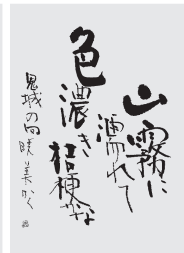 山霧に
濡れて
色濃き
桔梗かな
鬼城の句
美かく